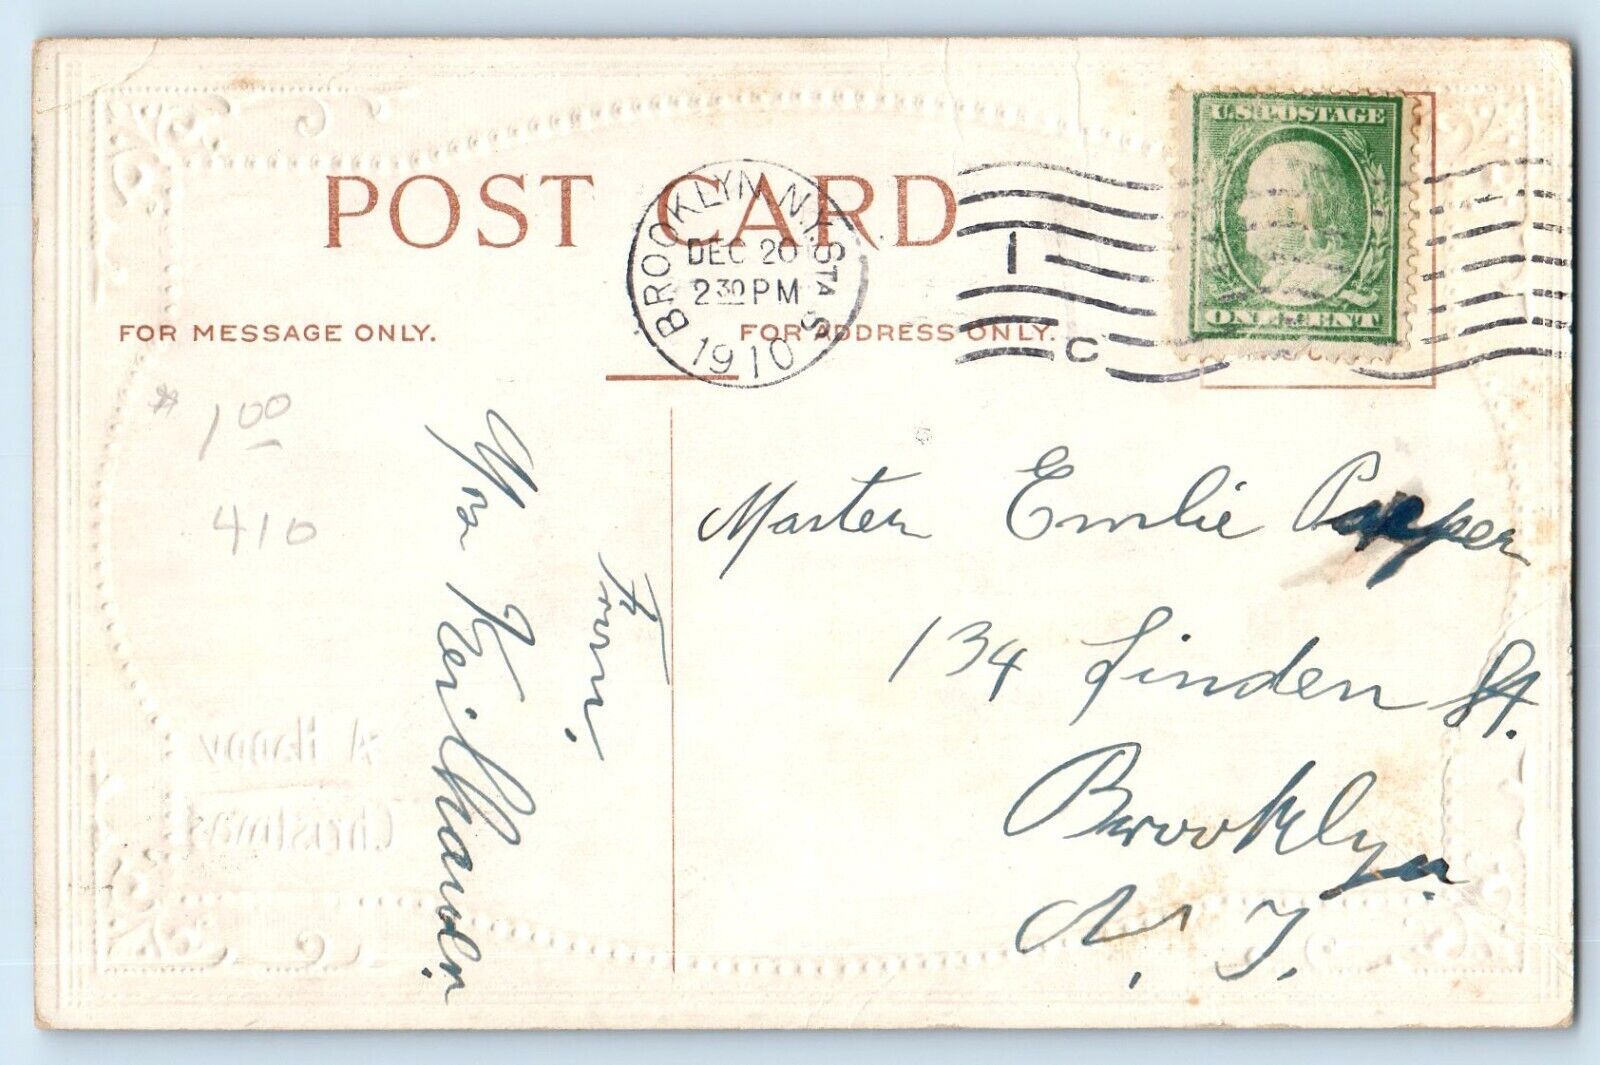 POST CARD
BROOKLYN, N.Y. STA. S
DEC 20
2 30 PM
1910
1
C
U.S. POSTAGE
ONE CENT
FOR MESSAGE ONLY.
FOR ADDRESS ONLY.
* 1 00
410
From
Mrs
Master Emlie
134 Linden St.
Brooklyn
N. Y.
A Happy
Christmas